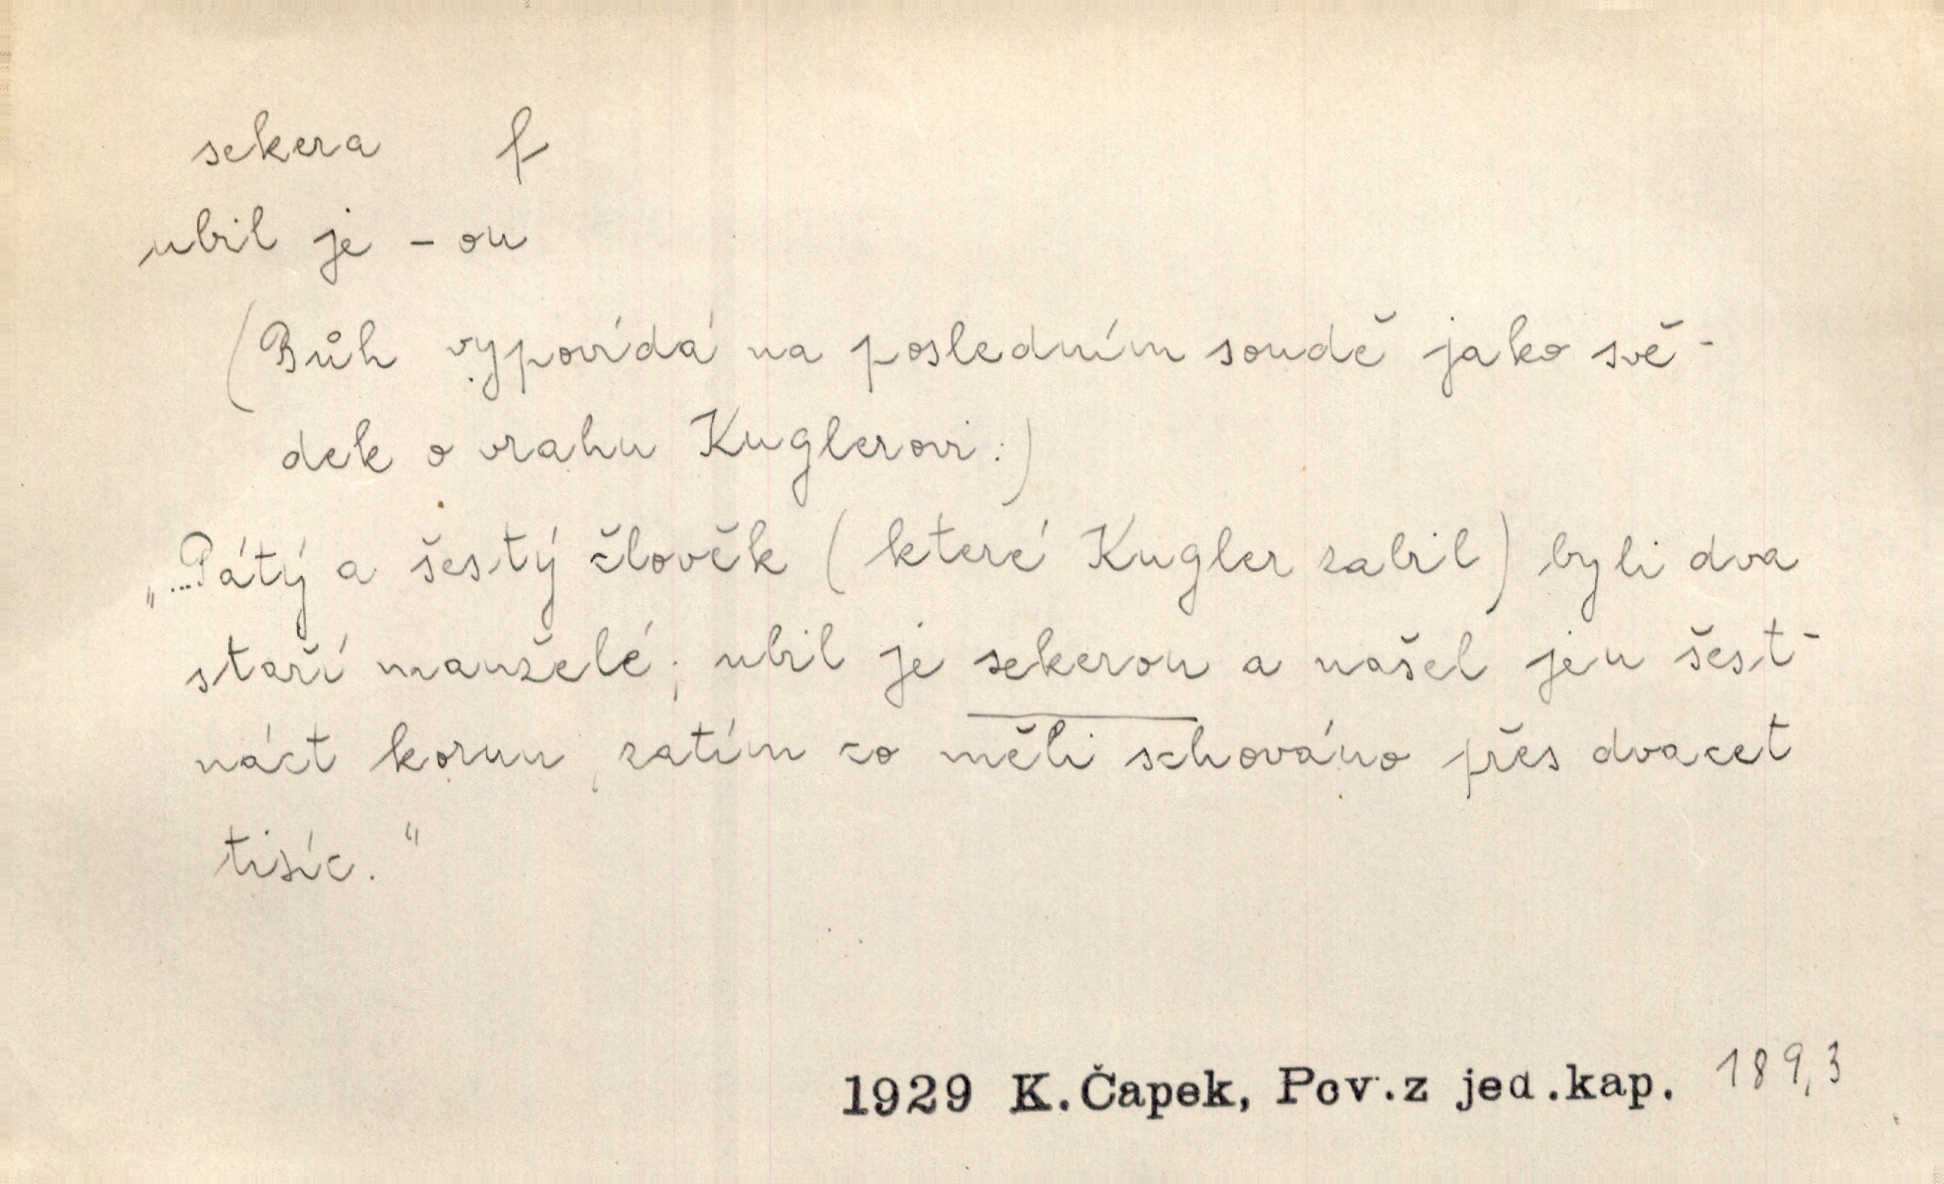 sekera f
ubil je - ou
(Bůh vypovídá na posledním soudě jako svě-
dek o vrahu Kuglerovi:)
„...Pátý a šestý člověk (které Kugler zabil) byli dva
staří manželé; ubil je sekerou a našel jen šest-
náct korun, zatím co měli schováno přes dvacet
tisíc.“
1929 K.Čapek, Pov.z jed.kap. 189,3